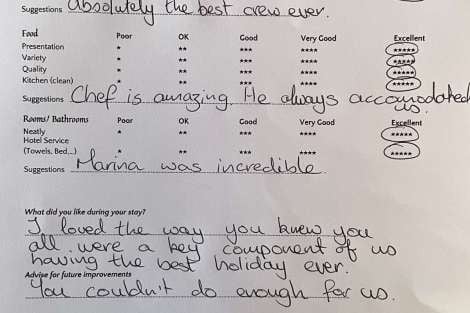 Suggestions Absolutely the best crew ever.
Food Poor OK Good Very Good Excellent
Presentation * ** *** **** *****
Variety * ** *** **** *****
Quality * ** *** **** *****
Kitchen (clean) * ** *** **** *****
Suggestions Chef is amazing. He always accomodated
us.
Rooms/ Bathrooms Poor OK Good Very Good Excellent
Neatly * ** *** **** *****
Hotel Service
(Towels, Bed...) * ** *** **** *****
Suggestions Marina was incredible
What did you like during your stay?
I loved the way you knew you
all were a key component of us
having the best holiday ever.
Advise for future improvements
You couldn't do enough for us.